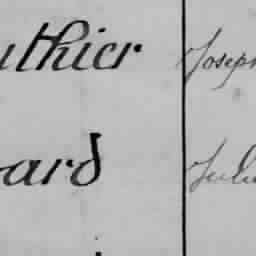 uthier Joseph
ard Juli